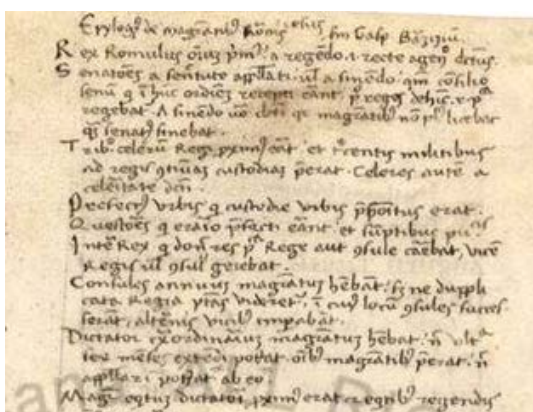 Epylogus de magratibus Romis totius sm Gasp Barziziu.
Rex Romulus oius pm9 a regendo .i. recte agendo dctus.
Senatores a senectute appellati. ul a sinendo. qm consilio
senu q i huc ordiem recepti eant p reges dehis r. p.
regebat. A sinendo uo dcti qr magratib9 no pl9 licebat
qs senat9 sinebat.
Trib9 celeru Regi pximi eant. et trcentis militibus
ad regis 9tinuas custodias perat. Celeres autem a
celeritate dcti.
Prefectus urbis q custodie urbis ppositus erat.
Questores q eraio pfecti eant. et suptibus pu
Inte Rex q don res p Rege aut 9sule caebat, vice
Regis ul 9sul gerebat.
Consules annuus magratus hebant. s ne duppli
cata Regia ptas videret. i cui9 locu 9sules succes
serat, alternis vicib9 impabat.
Dictator exordinarius magratus hebat. n ult
sex meses extedi poterat. oib9 magratib9 perat. n
appllari poterat ab eo.
Magr eqtu dictatoi pxim9 erat et eqtib9 regendis